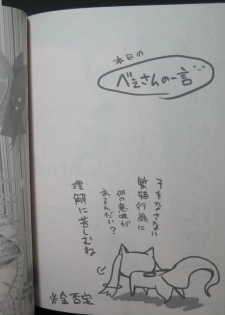 本日の
べえさんの一言
子をなさない
繁殖行為に
何の意味が
あるんだい?
理解に苦しむね
※全否定